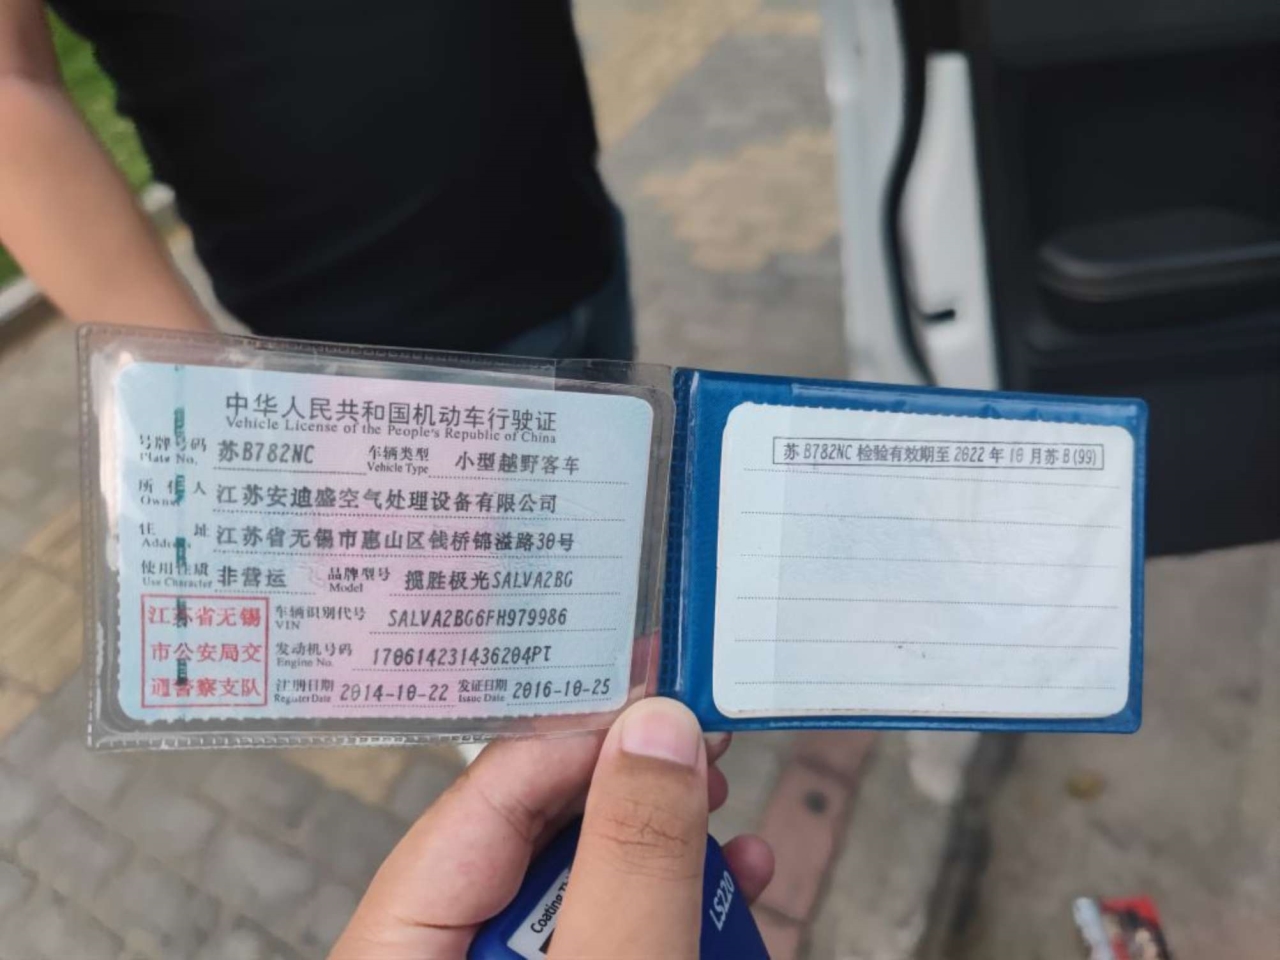 中华人民共和国机动车行驶证
Vehicle License of the People's Republic of China
号牌号码 苏B782NC 车辆类型 小型越野客车
Plate No. Vehicle Type
所有人 江苏安迪盛空气处理设备有限公司
Owner
住址 江苏省无锡市惠山区钱桥锦溢路30号
Address
使用性质 非营运 品牌型号 揽胜极光SALVA2BG
Use Character Model
江苏省无锡
市公安局交
通警察支队
车辆识别代号 SALVA2BG6FH979986
VIN
发动机号码 170614231436204PT
Engine No.
注册日期 2014-10-22 发证日期 2016-10-25
Register Date Issue Date
苏B782NC 检验有效期至 2022 年 10 月苏 B(99)
Coating
LS220